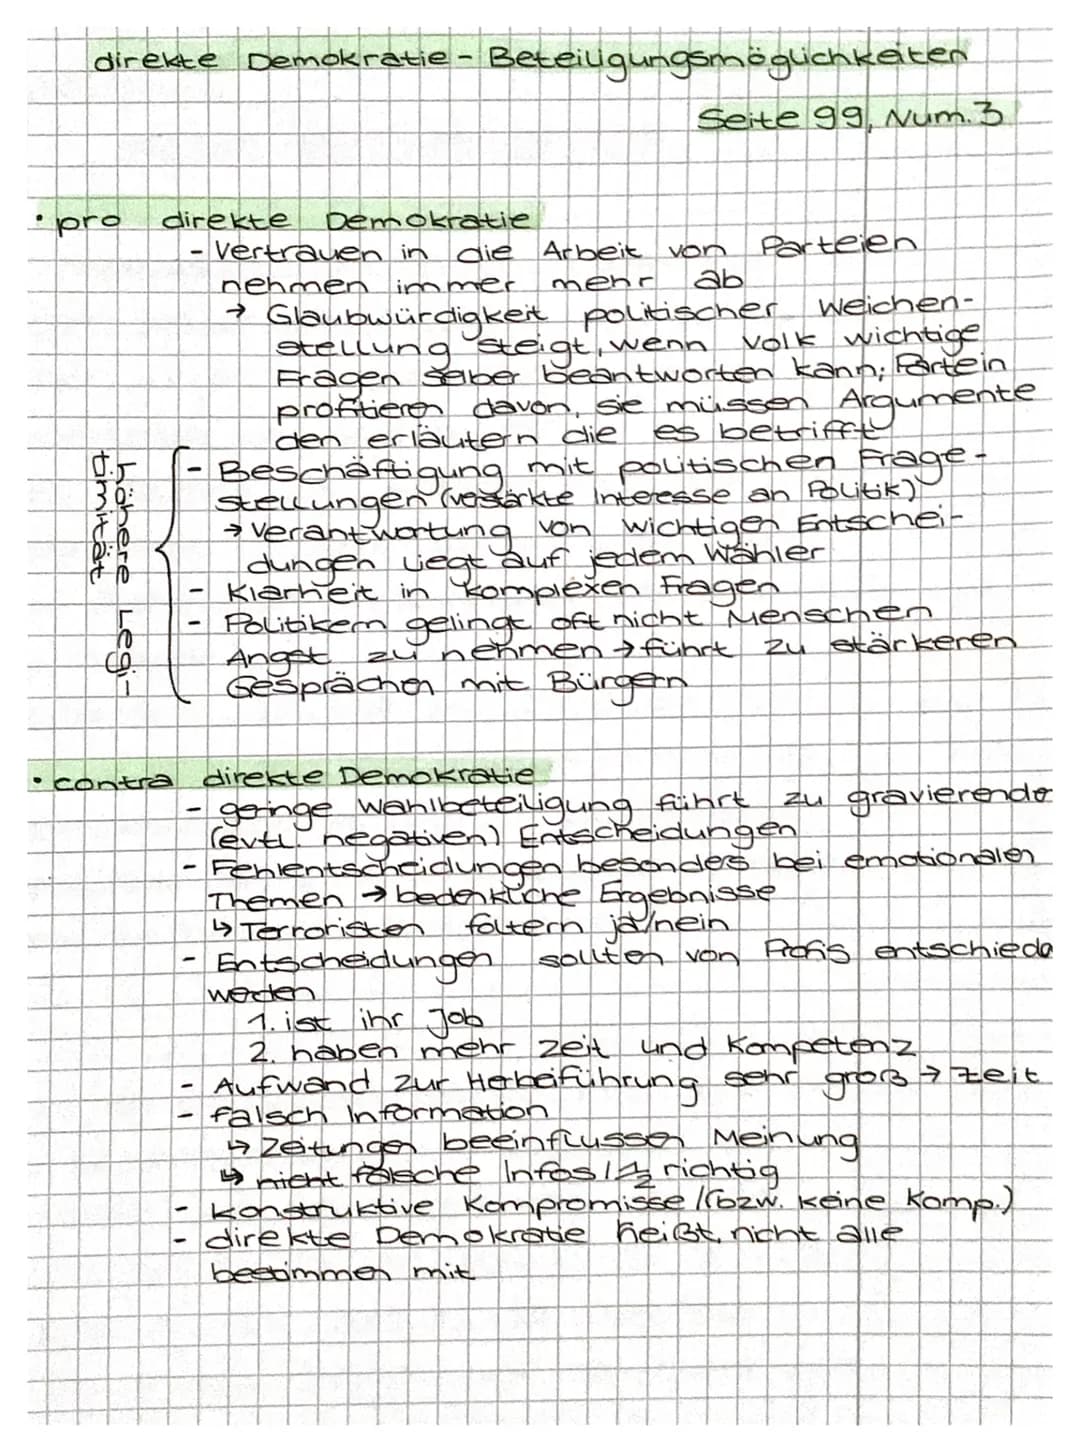 direkte Demokratie - Beteiligungsmöglichkeiten
Seite 99, Num. 3
• pro direkte Demokratie
- Vertrauen in die Arbeit von Parteien
nehmen immer mehr ab
→ Glaubwürdigkeit politischer Weichen-
stellung steigt, wenn Volk wichtige
Fragen selber beantworten kann; Partein
profitieren davon, sie müssen Argumente
den erläutern die es betrifft
- Beschäftigung mit politischen Frage-
stellungen (verstärkte Interesse an Politik)
→ Verantwortung von wichtigen Entschei-
dungen liegt auf jedem Wähler
- Klarheit in komplexen Fragen
- Politikern gelingt oft nicht Menschen
Angst zu nehmen → führt zu stärkeren
Gesprächen mit Bürgern
höhere Legi-
timität
• contra direkte Demokratie
- geringe Wahlbeteiligung führt zu gravierende
(evtl. negativen) Entscheidungen
- Fehlentscheidungen besonders bei emotionalen
Themen → bedenkliche Ergebnisse
↳ Terroristen foltern ja/nein
- Entscheidungen sollten von Profis entschiede
werden
1. ist ihr Job
2. haben mehr Zeit und Kompetenz
- Aufwand zur Herbeiführung sehr groß → Zeit
- falsch Information
↳ Zeitungen beeinflussen Meinung
↳ nicht falsche Infos / ½ richtig
- konstruktive Kompromisse / (bzw. keine Komp.)
- direkte Demokratie heißt nicht alle
bestimmen mit